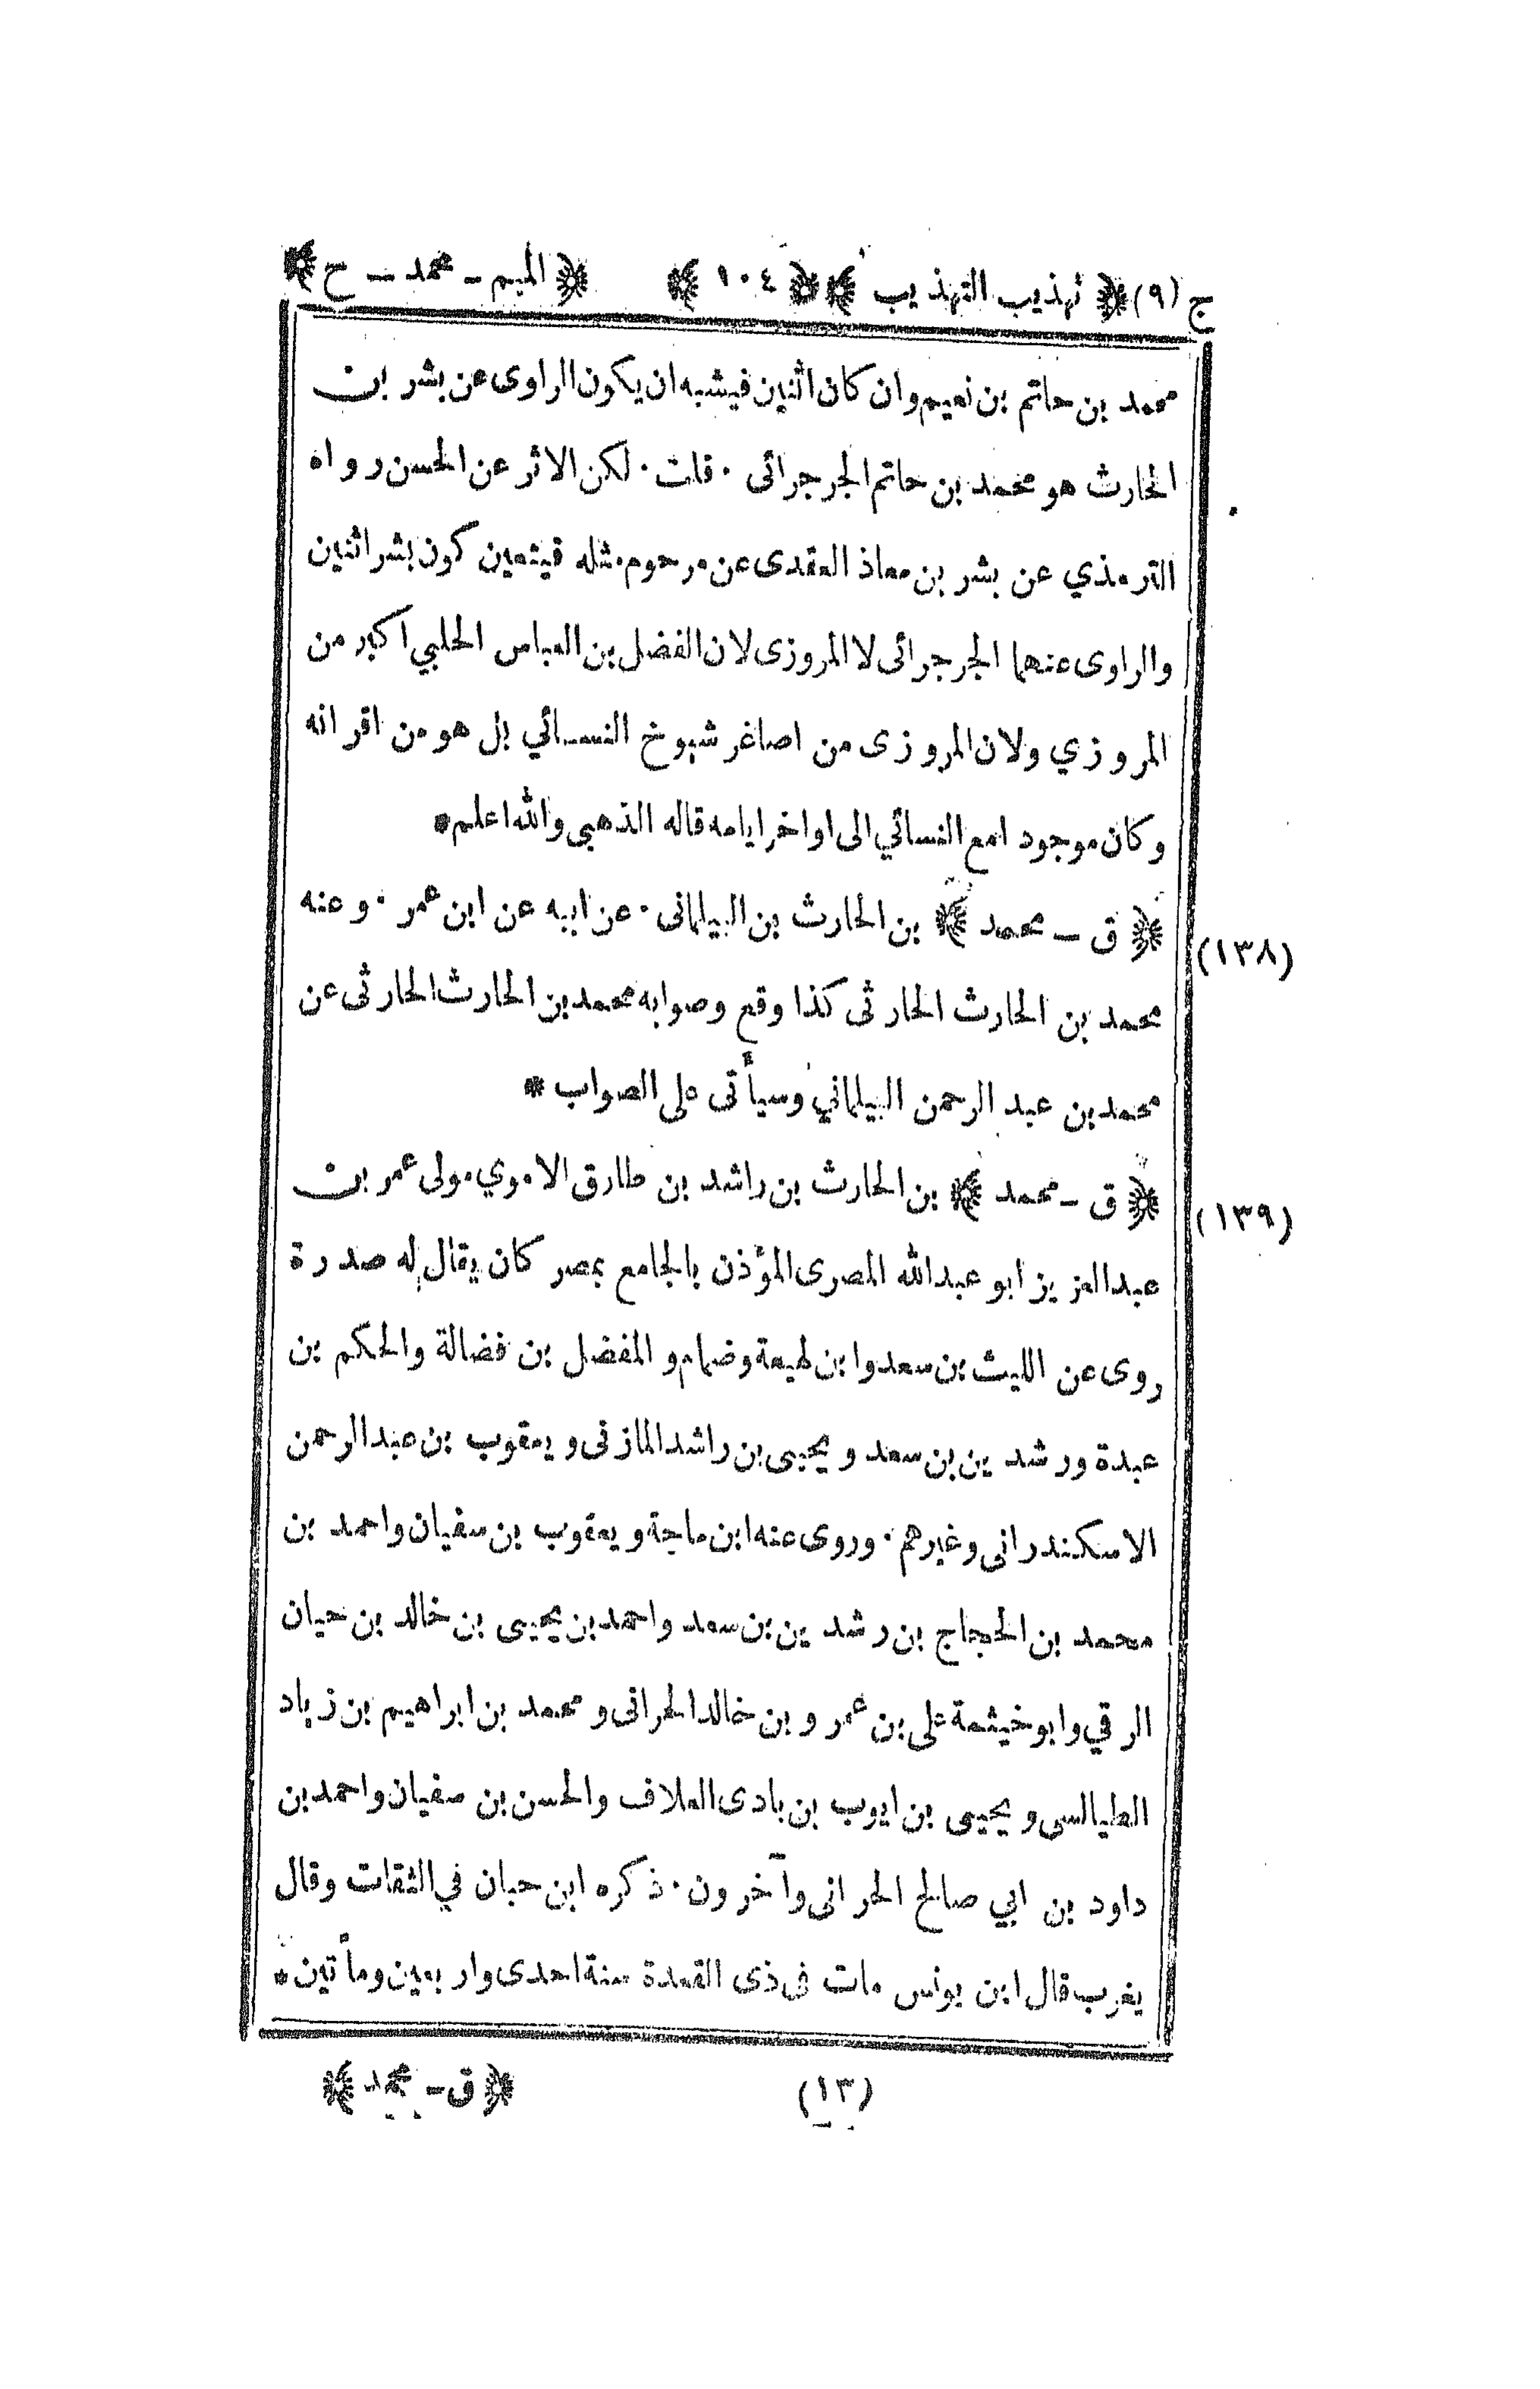 ج (٩) ﴿ تهذيب التهذيب ﴾ ﴿ ١٠٤ ﴾ ﴿ الميم - محمد - ح ﴾
محمد بن حاتم بن نعيم وان كان اثنين فيشبه ان يكون الراوى عن بشر بن
الحارث هو محمد بن حاتم الجرجرائى · قلت · لكن الاثر عن الحسن رواه
الترمذي عن بشر بن معاذ العقدى عن مرحوم مثله فيتعين كون بشر اثنين
والراوى عنهما الجرجرائى لا المروزى لان الفضل بن العباس الحلبي اكبر من
المروزي ولان المروزى من اصاغر شيوخ النسائي بل هو من اقرانه
وكان موجودا مع النسائي الى اواخر ايامه قاله الذهبى والله اعلم*
(١٣٨) ﴿ ق - محمد ﴾ بن الحارث بن البيلمانى · عن ابيه عن ابن عمر · وعنه
محمد بن الحارث الحارثى كذا وقع وصوابه محمد بن الحارث الحارثى عن
محمد بن عبد الرحمن البيلماني وسيأتى على الصواب *
(١٣٩) ﴿ ق - محمد ﴾ بن الحارث بن راشد بن طارق الاموي مولى عمر بن
عبد العزيز ابو عبد الله المصرى المؤذن بالجامع بمصر كان يقال له صدرة
روى عن الليث بن سعد وابن لهيعة وضمام و المفضل بن فضالة والحكم بن
عبدة ورشدين بن سعد و يحيى بن راشد المازنى و يعقوب بن عبد الرحمن
الاسكندرانى وغيرهم · وروى عنه ابن ماجة و يعقوب بن سفيان واحمد بن
محمد بن الحجاج بن رشدين بن سعد واحمد بن يحيى بن خالد بن حيان
الرقي وابو خيثمة على بن عمر و بن خالد الحرانى و محمد بن ابراهيم بن زياد
الطيالسى و يحيى بن ايوب بن بادى العلاف والحسن بن سفيان واحمد بن
داود بن ابي صالح الحرانى وآخرون · ذكره ابن حبان في الثقات وقال
يغرب قال ابن يونس مات فى ذى القعدة سنة احدى واربعين ومأتين *
(١٣) ﴿ ق - محمد ﴾